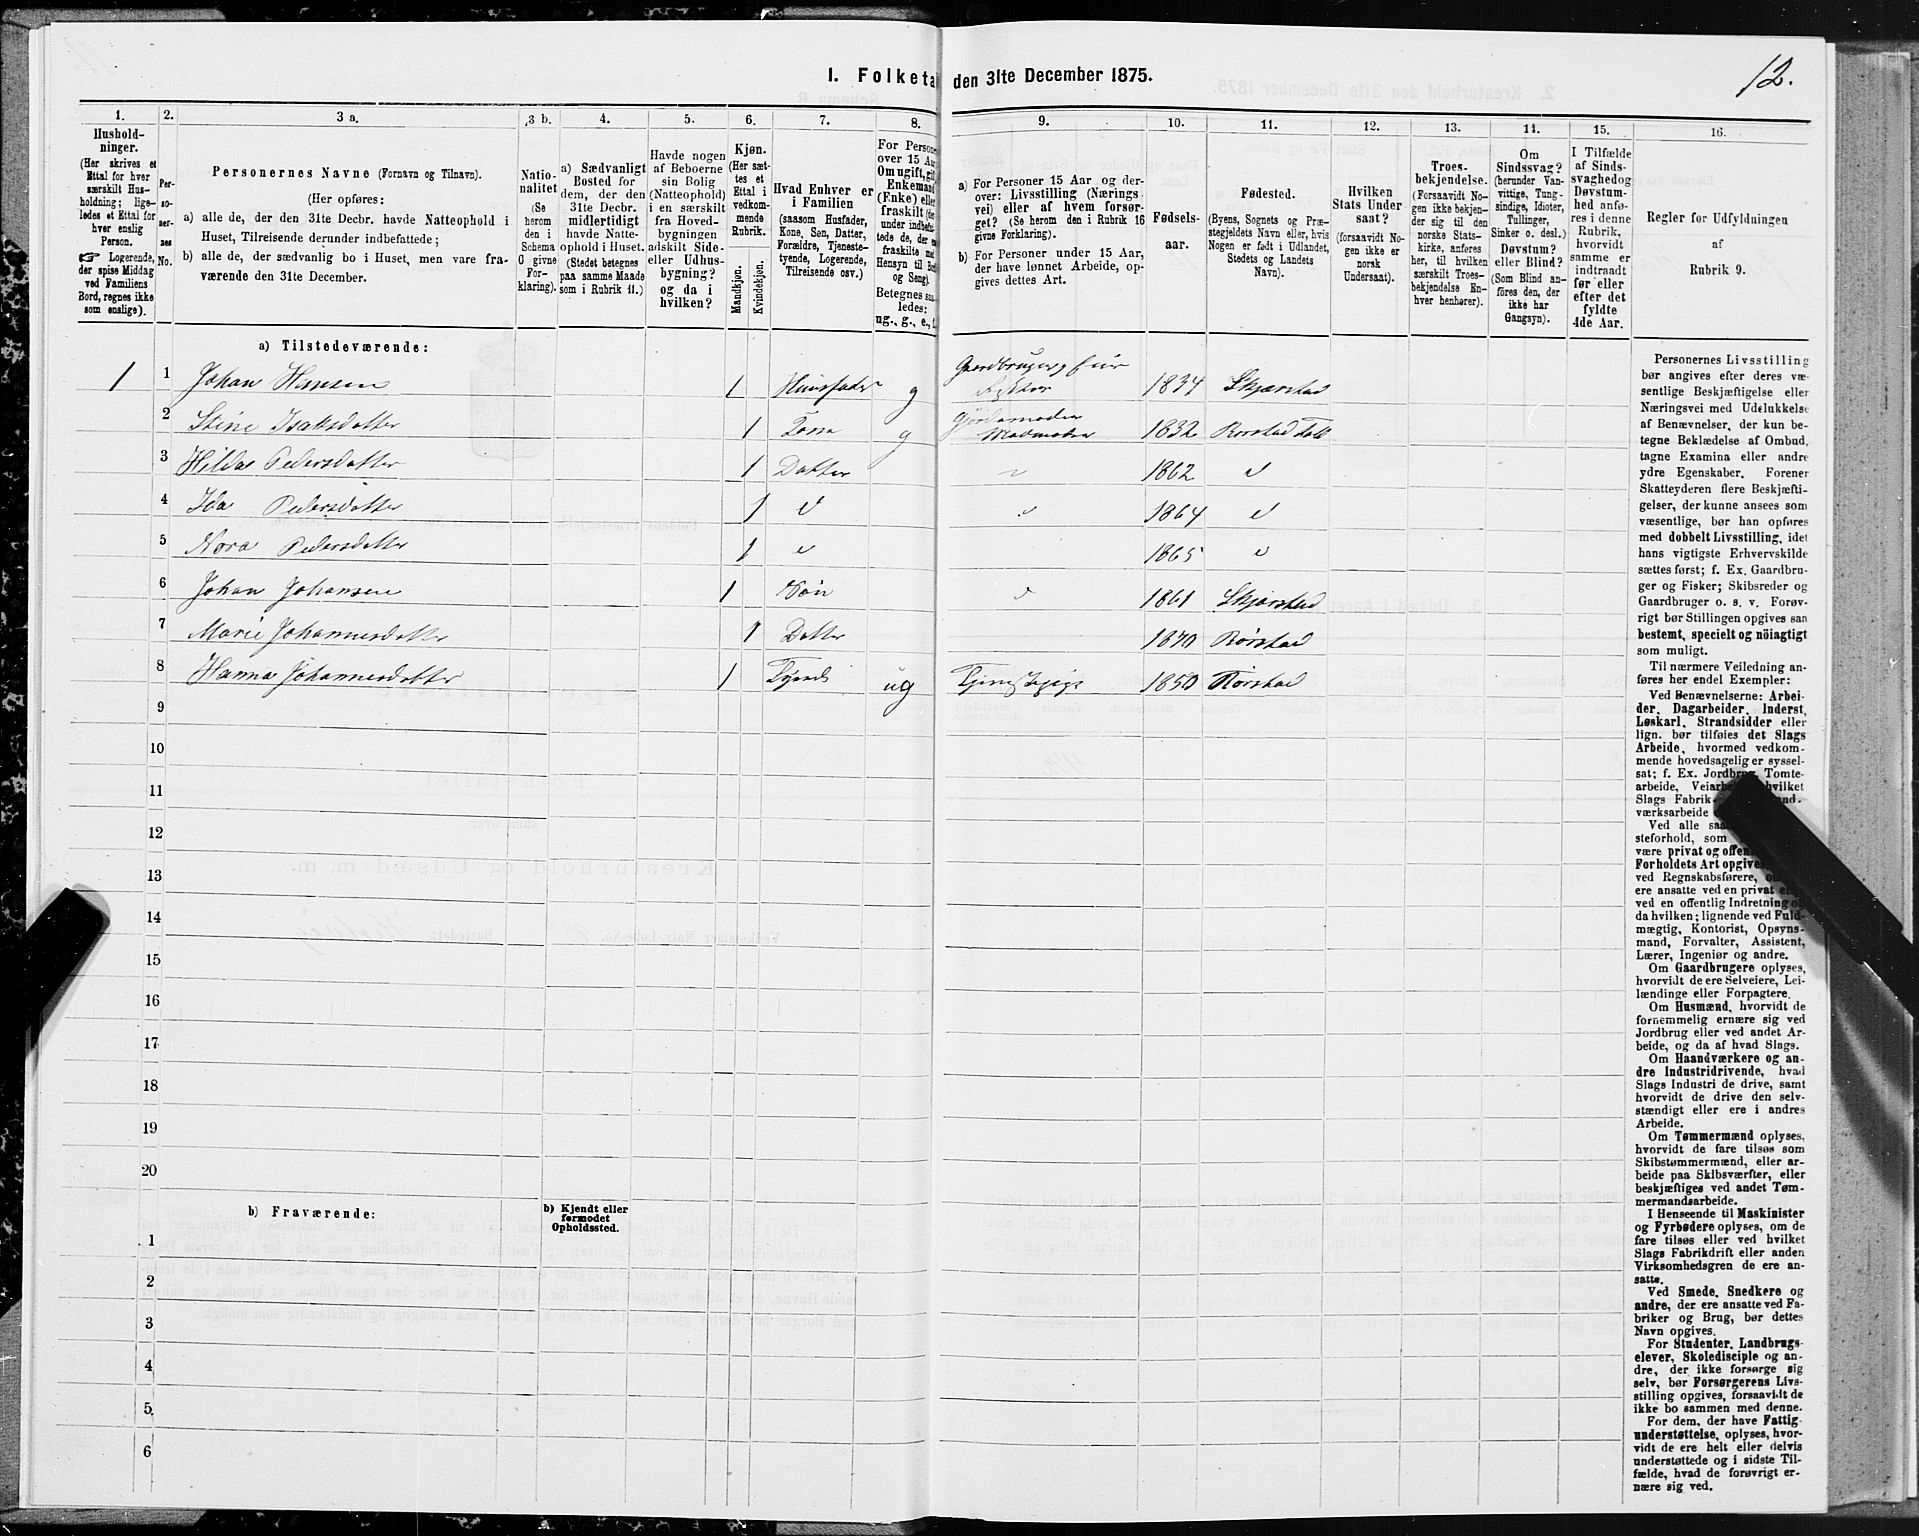 12.
I. Folketæ den 31te December 1875.
1. 2. 3 a. 3 b. 4. 5. 6. 7. 8. 9. 10. 11. 12. 13. 14. 15. 16.
Hushold-
ninger.
(Her skrives et
Ettal for hver
særskilt Hus-
holdning; lige-
ledes et Ettal for
hver enslig
Person.
☞ Logerende,
der spise Middag
ved Familiens
Bord, regnes ikke
som enslige).
Per-
so-
ner-
nes
No.
Personernes Navne (Fornavn og Tilnavn).
(Her opføres:
a) alle de, der den 31te Decbr. havde Natteophold i
Huset, Tilreisende derunder indbefattede;
b) alle de, der sædvanlig bo i Huset, men vare fra-
værende den 31te December.
Natio-
nalitet
(Se
herom
den i
Schema
O givne
For-
klaring).
a) Sædvanligt
Bosted for
dem, der den
31te Decbr.
midlertidigt
havde Natte-
ophold i Huset.
(Stedet betegnes
paa samme Maade
som i Rubrik 11.)
Havde nogen
af Beboerne
sin Bolig
(Natteophold)
i en særskilt
fra Hoved-
bygningen
adskilt Side-
eller Udhus-
bygning?
og da i
hvilken?
Kjøn.
(Her sæt-
tes et
Ettal i
vedkom-
mende
Rubrik.
Mandkjøn.
Kvindekjøn.
Hvad Enhver er
i Familien
(saasom Husfader,
Kone, Søn, Datter,
Forældre, Tjeneste-
tyende, Logerende,
Tilreisende osv.)
For Person
over 15 Aar
Om ugift, gif
Enkemand
(Enke) eller
fraskilt (der
under indbefat
tede de, der er
fraskilte med
Hensyn til Bo
og Seng).
Betegnes saa
ledes:
ug., g., e., f.
a) For Personer 15 Aar og der-
over: Livsstilling (Nærings-
vei) eller af hvem forsør-
get? (Se herom den i Rubrik 16
givne Forklaring).
b) For Personer under 15 Aar,
der have lønnet Arbeide, op-
gives dettes Art.
Fødsels-
aar.
Fødested.
(Byens, Sognets og Præ-
stegjeldets Navn eller, hvis
Nogen er født i Udlandet,
Stedets og Landets
Navn).
Hvilken
Stats Under
saat?
(forsaavidt No-
gen ikke er
norsk
Undersaat).
Troes-
bekjendelse.
(Forsaavidt No-
gen ikke bekjen-
der sig til den
norske Stats-
kirke, anføres
her, til hvilken
særskilt Troes-
bekjendelse En-
hver henhører).
Om
Sindssvag?
(herunder Van-
vittige, Tung-
sindige, Idioter,
Tullinger,
Sinker o. desl.)
Døvstum?
eller Blind?
(Som Blind an-
føres den, der
ikke har
Gangsyn).
I Tilfælde
af Sinds-
svaghed og
Døvstum-
hed anfø-
res i denne
Rubrik,
hvorvidt
samme er
indtraadt
før eller
efter det
fyldte
4de Aar.
Regler for Udfyldningen
af
Rubrik 9.
a) Tilstedeværende:
1 1 Johan Hansen 1 Huusfader g Gaardbruger, 1834 Skjærstad
2 Stine Isaksdatter 1 g 1832 Rørstad
3 Hilda Pedersdatter 1 Datter 〃 1862 〃
4 Ida Pedersdatter 1 〃 〃 1864 〃
5 Nora Pedersdatter 1 〃 1865 〃
6 Johan Johansen 1 Søn 〃 1861 Skjærstad
7 Marie Johannesdatter 1 Datter 1870 Rørstad
8 Hanna Johannesdatter 1 ug 1850 Rørstad
9
10
11
12
13
14
15
16
17
18
19
20
b) Fraværende:
b) Kjendt eller
formodet
Opholdssted.
1
2
3
4
5
6
Personernes Livsstilling
bør angives efter deres væ-
sentlige Beskjæftigelse eller
Næringsvei med Udelukkelse
af Benævnelser, der kun be-
tegne Beklædelse af Ombud,
tagne Examina eller andre
ydre Egenskaber. Forener
Skatteyderen flere Beskjæfti-
gelser, der kunne ansees som
væsentlige, bør han opføres
med dobbelt Livsstilling, idet
hans vigtigste Erhvervskilde
sættes først; f. Ex. Gaardbru-
ger og Fisker; Skibsreder og
Gaardbruger o. s. v. Forøv-
rigt bør Stillingen opgives saa
bestemt, specielt og nöiagtigt
som muligt.
Til nærmere Veiledning an-
føres her endel Exempler:
Ved Benævnelserne: Arbei-
der, Dagarbeider, Inderst,
Løskarl, Strandsidder eller
lign. bør tilføies det Slags
Arbeide, hvormed vedkom-
mende hovedsagelig er syssel-
sat; f. Ex. Jordbrug, Tomte-
arbeide, Veiarbe hvilket
Slags Fabrik- and-
værksarbeide
Ved alle saa
steforhold, som
være privat og offen
Forholdets Art opgives,
ved Regnskabsførere,
ere ansatte ved en privat el
ved en offentlig Indretning o
da hvilken; lignende ved Fuld-
mægtig, Kontorist, Opsyns-
mand, Forvalter, Assistent,
Lærer, Ingeniør og andre.
Om Gaardbrugere oplyses,
hvorvidt de ere Selveiere, Lei-
lændinge eller Forpagtere.
Om Husmænd, hvorvidt de
fornemmelig ernære sig ved
Jordbrug eller ved andet Ar-
beide, og da af hvad Slags.
Om Haandværkere og an-
dre Industridrivende, hvad
Slags Industri de drive, samt
hvorvidt de drive den selv-
stændigt eller ere i andres
Arbeide.
Om Tømmermænd oplyses,
hvorvidt de fare tilsøs som
Skibstømmermænd, eller ar-
beide paa Skibsværfter, eller
beskjæftiges ved andet Tøm-
mermandsarbeide.
I Henseende til Maskinister
og Fyrbødere oplyses, om de
fare tilsøs eller ved hvilket
Slags Fabrikdrift eller anden
Virksomhedsgren de ere an-
satte.
Ved Smede, Snedkere og
andre, der ere ansatte ved Fa-
briker og Brug, bør dettes
Navn opgives.
For Studenter, Landbrugs-
elever, Skoledisciple og an-
dre, der ikke forsørge sig
selv, bør Forsørgerens Livs-
stilling opgives, forsaavidt de
ikke bo sammen med denne.
For dem, der have Fattig-
understøttelse, oplyses, hvor-
vidt de ere helt eller delvis
understøttede og i sidste Til-
fælde, hvad de forøvrigt er-
nære sig ved.